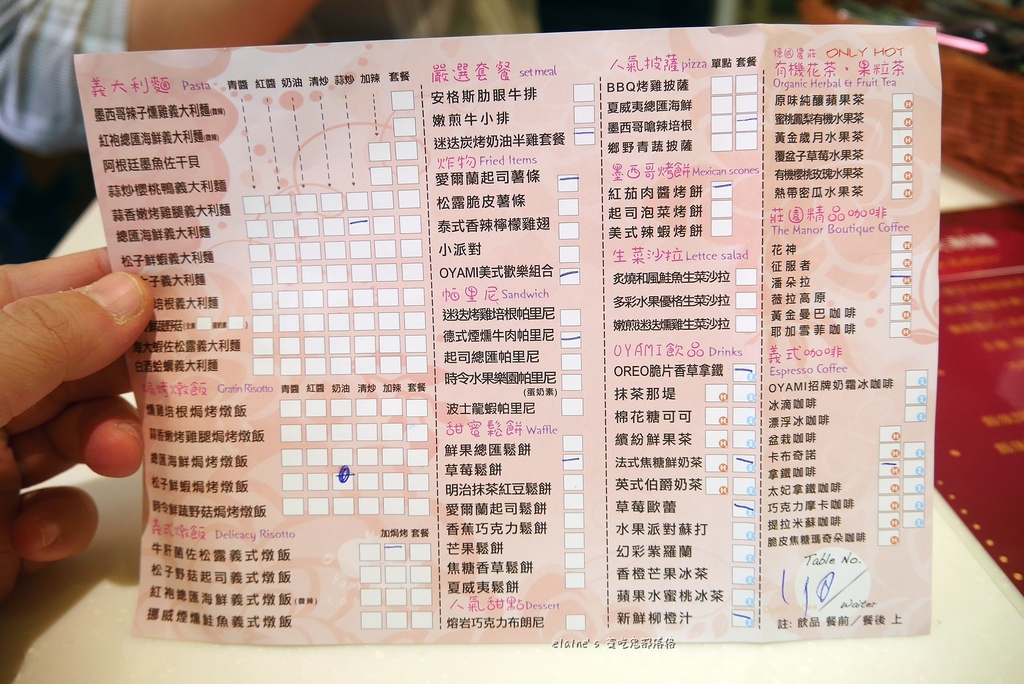 義大利麵 Pasta 青醬 紅醬 奶油 清炒 蒜炒 加辣 套餐
墨西哥辣子燻雞義大利麵(微辣)
紅袍總匯海鮮義大利麵(微辣)
阿根廷墨魚佐干貝
蒜炒櫻桃鴨義大利麵
蒜香嫩烤雞腿義大利麵
總匯海鮮義大利麵
松子鮮蝦義大利麵
子義大利麵
培根義大利麵
野菇
海大蝦佐松露義大利麵
白酒蛤蠣義大利麵
焗烤燉飯 Gratin Risotto 青醬 紅醬 奶油 清炒 加辣 套餐
燻雞培根焗烤燉飯
蒜香嫩烤雞腿焗烤燉飯
總匯海鮮焗烤燉飯
松子鮮蝦焗烤燉飯
時令鮮蔬野菇焗烤燉飯
義式燉飯 Delicacy Risotto 加焗烤 套餐
牛肝菌佐松露義式燉飯
松子野菇起司義式燉飯
紅袍總匯海鮮義式燉飯(微辣)
挪威煙燻鮭魚義式燉飯
嚴選套餐 set meal
安格斯肋眼牛排
嫩煎牛小排
迷迭炭烤奶油半雞套餐
炸物 Fried Items
愛爾蘭起司薯條
松露脆皮薯條
泰式香辣檸檬雞翅
小派對
OYAMI美式歡樂組合
帕里尼 Sandwich
迷迭烤雞培根帕里尼
德式煙燻牛肉帕里尼
起司總匯帕里尼
時令水果樂園帕里尼
(蛋奶素)
波士龍蝦帕里尼
甜蜜鬆餅 Waffle
鮮果總匯鬆餅
草莓鬆餅
明治抹茶紅豆鬆餅
愛爾蘭起司鬆餅
香蕉巧克力鬆餅
芒果鬆餅
焦糖香草鬆餅
夏威夷鬆餅
人氣甜點 Dessert
熔岩巧克力布朗尼
人氣披薩 pizza 單點 套餐
BBQ烤雞披薩
夏威夷總匯海鮮
墨西哥嗆辣培根
鄉野青蔬披薩
墨西哥烤餅 Mexican scones
紅茄肉醬烤餅
起司泡菜烤餅
美式辣蝦烤餅
生菜沙拉 Lettce salad
炙燒和風鮭魚生菜沙拉
多彩水果優格生菜沙拉
嫩煎迷迭燻雞生菜沙拉
OYAMI飲品 Drinks
OREO脆片香草拿鐵
抹茶那堤
棉花糖可可
繽紛鮮果茶
法式焦糖鮮奶茶
英式伯爵奶茶
草莓歐蕾
水果派對蘇打
幻彩紫羅蘭
香橙芒果冰茶
蘋果水蜜桃冰茶
新鮮柳橙汁
德國農莊 ONLY HOT
有機花茶、果粒茶
Organic Herbal & Fruit Tea
原味純釀蘋果茶
蜜桃鳳梨有機水果茶
黃金歲月水果茶
覆盆子草莓水果茶
有機櫻桃玫瑰水果茶
熱帶密瓜水果茶
莊園精品咖啡
The Manor Boutique Coffee
花神
征服者
潘朵拉
薇拉高原
黃金曼巴咖啡
耶加雪菲咖啡
義式咖啡
Espresso Coffee
OYAMI招牌奶霜冰咖啡
冰滴咖啡
漂浮冰咖啡
盆栽咖啡
卡布奇諾
拿鐵咖啡
太妃拿鐵咖啡
巧克力摩卡咖啡
提拉米蘇咖啡
脆皮焦糖瑪奇朵咖啡
Table No.
110
Waiter
註: 飲品 餐前／餐後 上
elaine's 愛吃鬼部落格